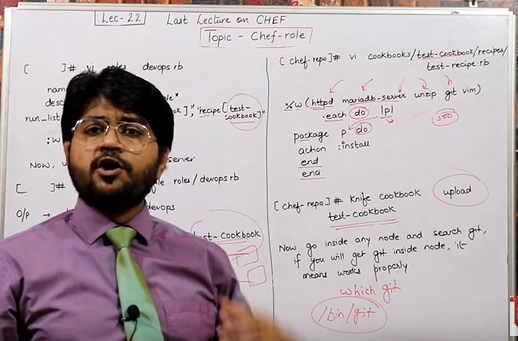 Lec-22 Last Lecture on CHEF
Topic - Chef-role
[ ]# vi roles devops.rb
nam
des
run-lis
"recipe[test-
cookbook]"
:w
Now, server
[ ]# role / devops.rb
O/p → devops
st-cookbook
[chef-repo]# vi cookbooks/test-cookbook/recipes/
test-recipe.rb
%w (httpd mariadb-server unzip git vim)
.each do |p|
package p do
action :install
end
end
[chef-repo]# Knife cookbook upload
test-cookbook
Now go inside any node and search git,
if you will get git inside node, it
means works properly.
which git
/bin/git